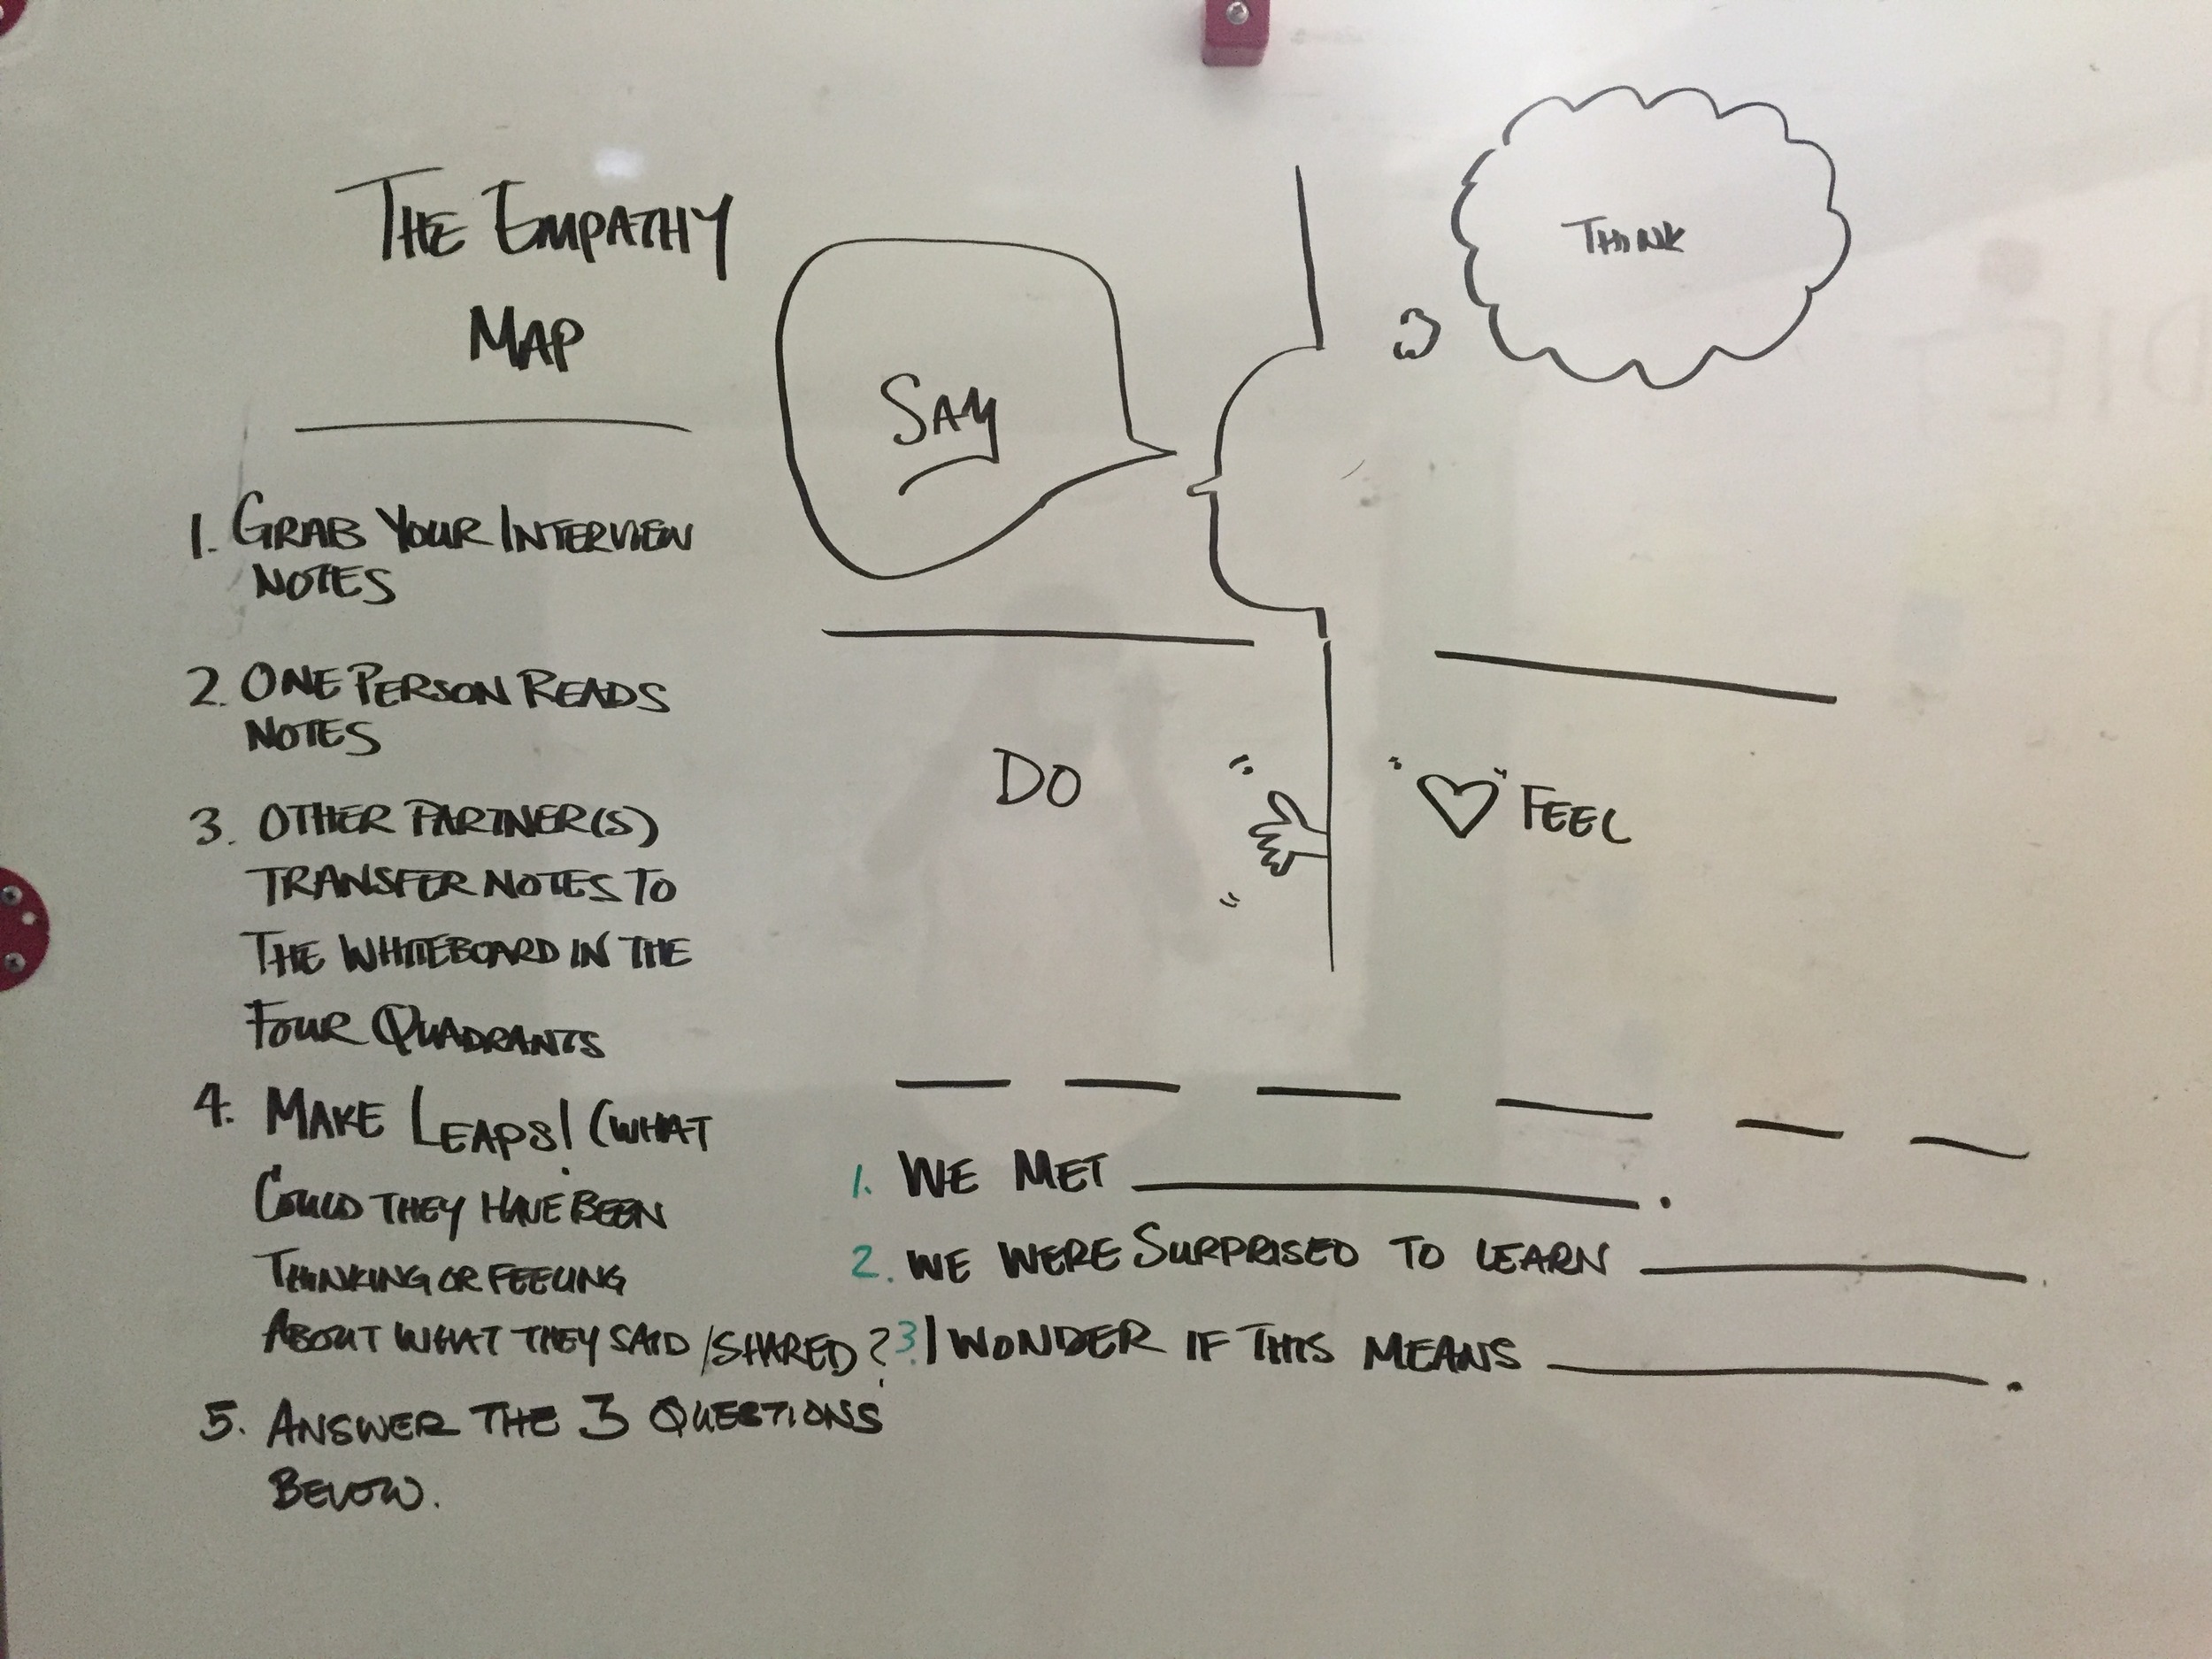 THE EMPATHY
MAP
1. GRAB YOUR INTERVIEW
NOTES
2. ONE PERSON READS
NOTES
3. OTHER PARTNER(S)
TRANSFER NOTES TO
THE WHITEBOARD IN THE
FOUR QUADRANTS
4. MAKE LEAPS! (WHAT
COULD THEY HAVE BEEN
THINKING OR FEELING
ABOUT WHAT THEY SAID/SHARED?
5. ANSWER THE 3 QUESTIONS
BELOW.
SAY
THINK
DO
FEEL
1. WE MET ________.
2. WE WERE SURPRISED TO LEARN ________.
3. I WONDER IF THIS MEANS ________.